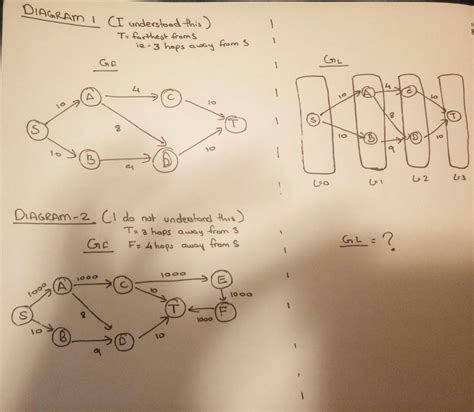 DIAGRAM 1 (I understood this)
T = farthest from S
ie - 3 hops away from S
GF
GL
10
A
4
C
10
S
8
T
10
B
9
D
10
10
A
4
C
10
S
8
T
10
B
9
D
10
L=0
L=1
L=2
L=3
DIAGRAM-2 (I do not understand this)
T = 3 hops away from S
GF
F = 4 hops away from S
GL = ?
1000
A
1000
C
1000
E
10
1000
S
8
T
1000
F
10
B
9
D
10